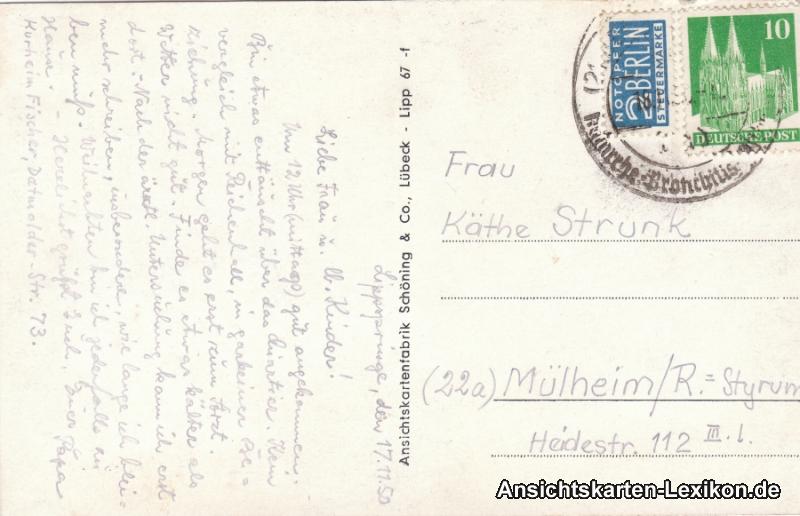 Lippspringe, den 17.11.50
Liebe Frau u. ll. Kinder!
Um 12 Uhr (mittags) gut angekommen.
Bin etwas enttäuscht über das Quartier. Kein
Vergleich mit Reichenhall, in garkeiner Be-
ziehung. Morgen geht es erst zum Arzt.
Wetter nicht gut. Finde es etwas kälter als
dort. - Nach der ärztl. Untersuchung kann ich erst
mehr schreiben, insbesondere, wie lange ich blei-
ben muß. Weihnachten bin ich jedenfalls zu
Hause. - Herzlichst grüßt Euch, Euer Papa
Kurheim Fischer, Detmolder Str. 73.
Ansichtskartenfabrik Schöning & Co., Lübeck - Lipp 67 -f
NOTOPFER
2 BERLIN
STEUERMARKE
10
DEUTSCHE POST
Katarrhe - Bronchitis
Frau
Käthe Strunk
(22a) Mülheim/R.=Styrum
Heidestr. 112 III. l.
Ansichtskarten-Lexikon.de